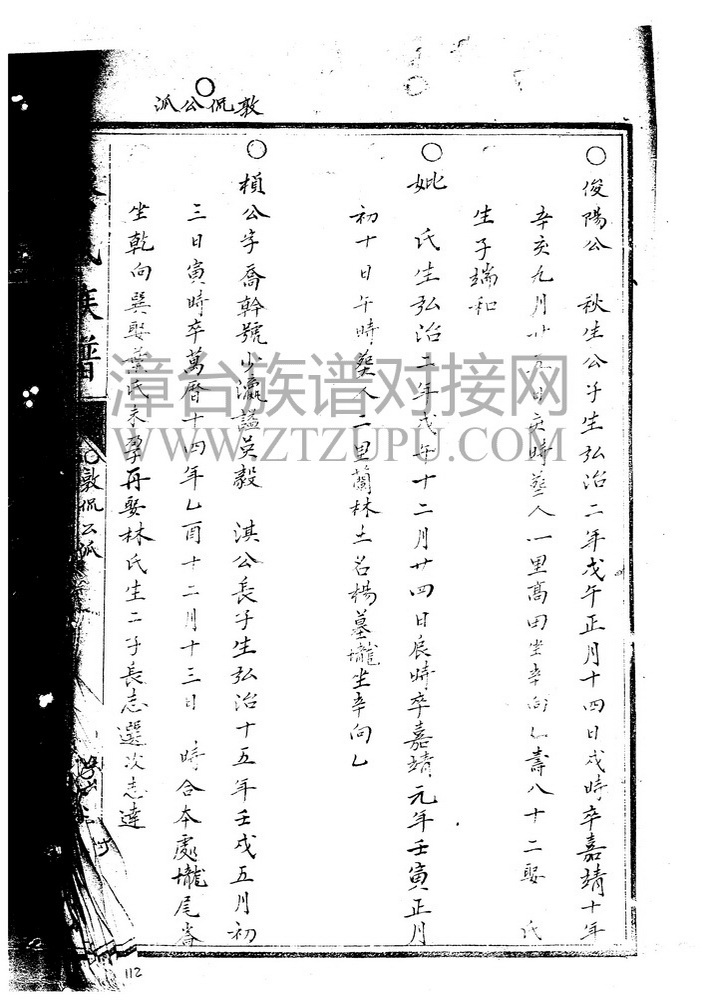 敦侃公派
俊陽公 秋生公子生弘治二年戊午正月十四日戌時卒嘉靖十年
辛亥九月廿五日亥時葬人一里高田坐辛向乙壽八十二娶 氏
生子端和
妣 氏生弘治二年戊午十二月廿四日辰時卒嘉靖元年壬寅正月
初十日午時葬人二里蘭林土名楊墓壠坐辛向乙
楨公字喬幹號少瀛謚英毅 淇公長子生弘治十五年壬戌五月初
三日寅時卒萬曆十四年乙酉十二月十三日 時合本處壠尾崙
坐乾向巽娶葉氏未孕再娶林氏生二子長志選次志達
氏族譜
敦侃公派
112
漳台族谱对接网
WWW.ZTZUPU.COM